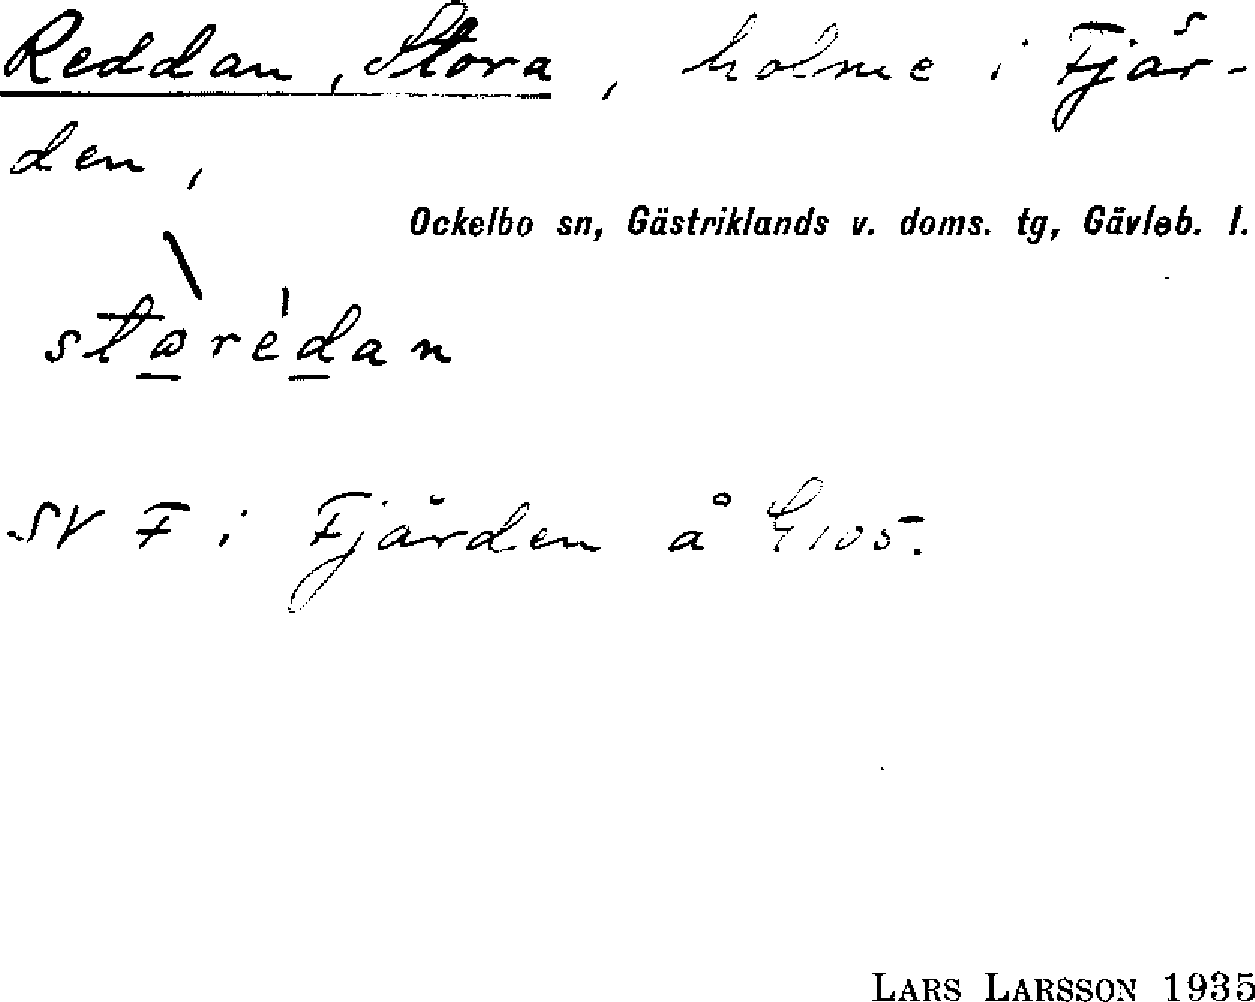 Reddan, Stora, holme i Fjär-
den,
Ockelbo sn, Gästriklands v. doms. tg, Gävleb. l.
starèdan
SV F i Fjärden å G105.
LARS LARSSON 1935